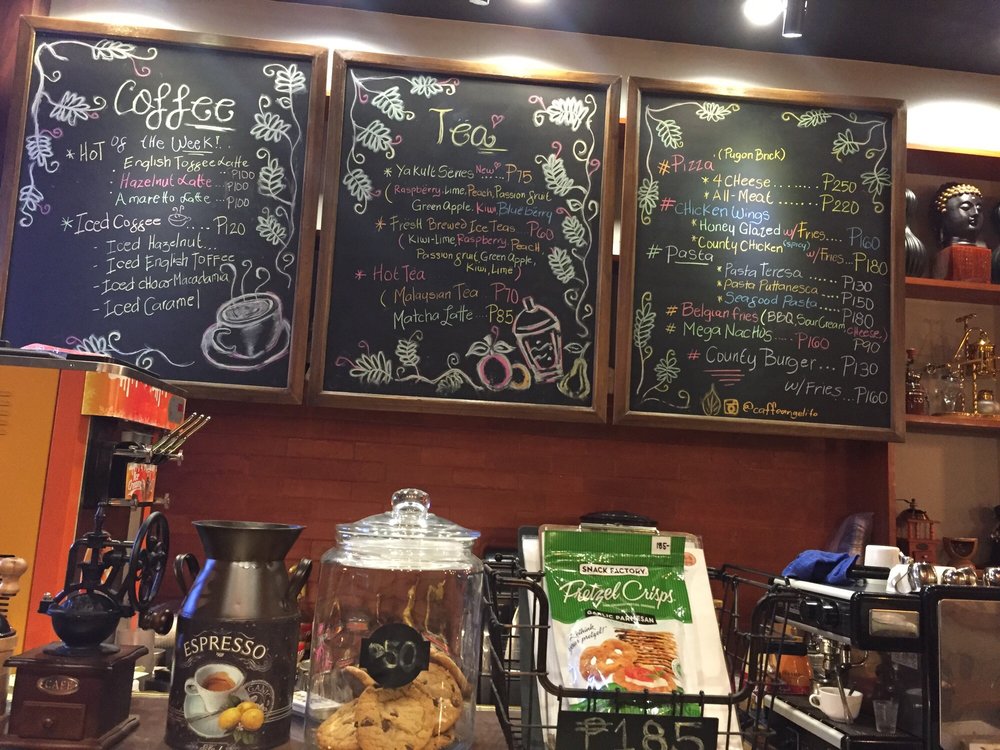 Coffee
* HOT of the Week!..
English Toffee Latte
P100
Hazelnut Latte...P100
Amaretto Latte...P100
* Iced Coffee P120
- Iced Hazelnut....
- Iced English Toffee
- Iced choco Macadamia
- Iced Caramel
Tea
* Yakult Series New.....P75
(Raspberry, Lime, Peach, Passion fruit
Green Apple, Kiwi, Blueberry
* Fresh Brewed Ice Teas P60
(Kiwi-Lime, Raspberry, Peach,
Passion fruit, Green Apple,
Kiwi, Lime)
* Hot Tea
(Malaysian Tea..P70
Matcha Latte...P85
# Pizza (Pugon Brick)
* 4 CHeese........P250
* All-Meat........P220
# CHicken Wings
* Honey Glazed w/Fries...P160
* County Chicken (spicy) w/Fries...P180
# Pasta
* Pasta Teresa...P130
* Pasta Puttanesca...P150
* Seafood Pasta...P180
# Belgian fries (BBQ, Sour Cream, Cheese)
P90
# Mega Nachos.....P160
# County Burger...P130
w/Fries...P160
@caffeangelito
CAFE
ESPRESSO
P50
185-
SNACK FACTORY
Pretzel Crisps
GARLIC PARMESAN
Rethink
your pretzel!
P185